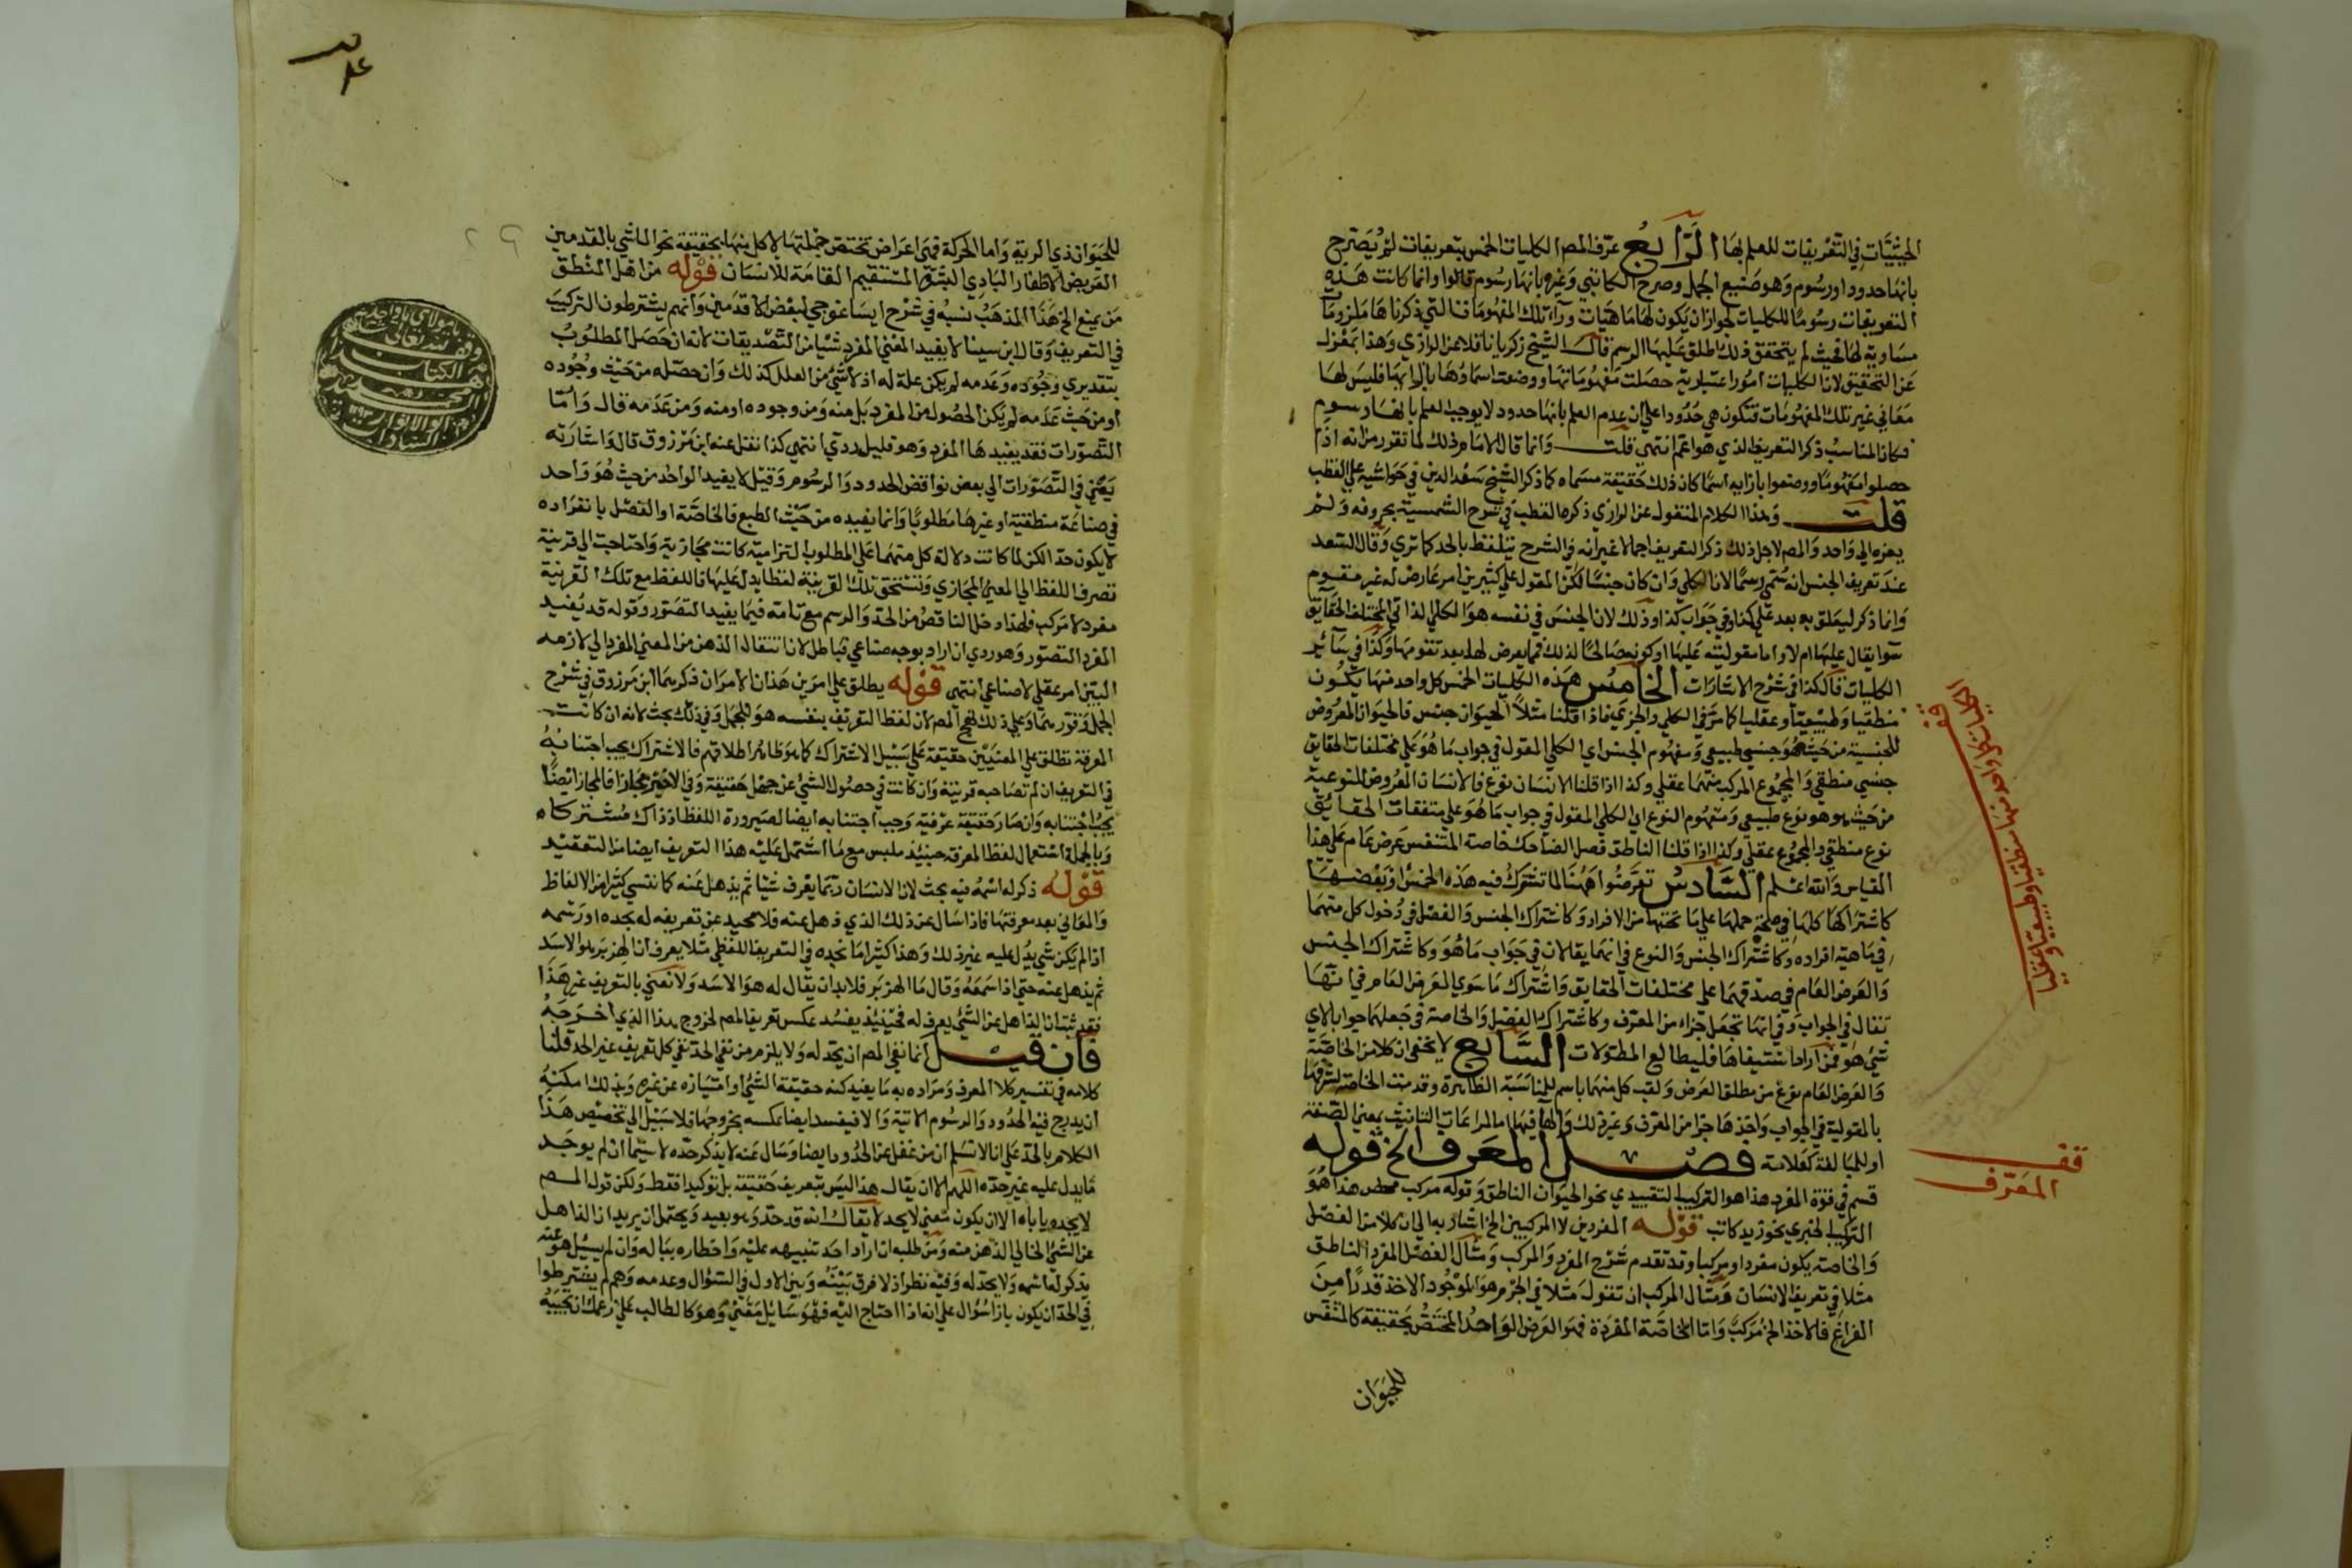 الحيثيات في التعريفات للعلم بها الرابع عرف المصم الكليات الخمس بتعريفات لم يصرح
بانها حدود او رسوم وهو صنيع الجمل وصرح الكاتبي وغيره بانها رسوم قالوا وانما كانت هذه
التعريفات رسوما للكليات لجواز ان يكون لها ماهيات وراء تلك المفهومات التي ذكرناها ملزوما
مساوية لها فحيث لم يتحقق ذلك اطلق عليها الرسم قال الشيخ زكريا ناقلا عن الرازي وهذا بمعزل
عن التحقيق لان الكليات امور اعتبارية حصلت مفهوماتها ووضعت اسماؤها بازائها فليس لها
معاني غير تلك المفهومات فتكون هي حدودا على ان عدم العلم بانها حدود لا يوجب العلم بانها رسوم
فكان المناسب ذكر التعريف الذي هو اعم انتهى قلت وانما قال الامام ذلك لما تقرر من انه اذا
حصلوا مفهوما ووضعوا بازايه اسما كان ذلك حقيقة مسماه كما ذكر الشيخ سعد الدين في حواشيه على القطب
قلت وهذا الكلام المنقول عن الرازي ذكره القطب في شرح الشمسية بحروفه ولم
يعزه الى واحد والمصم لاجل ذلك ذكر التعريف اجمالا غير انه في الشرح تلفظ بالحد كما ترى وقال السعد
عند تعريف الجنس انه سمى رسما لان الكلي وان كان جنسا لكن المقول على كثيرين امر عارض له غير مقوم
وانما ذكر ليعلق به بعد على كذا وفي جواب كذا وذلك لان الجنس في نفسه هو الكلي الذاتي المختلف الحقايق
سوا يقال عليها ام لا واما مقوليته عليها او كونه صالحا لذلك فمما يعرض لها بعد تقومها وكذا في سائر
الكليات قال كذا في شرح الاشارات الخامس هذه الكليات الخمس كل واحد منها يكون
منطقيا وطبيعيا وعقليا كما مر في الكلي والجزئي فاذا قلنا مثلا الحيوان جنس فالحيوان المعروض
للجنسية من حيث هو جنس طبيعي ومفهوم الجنس اي الكلي المقول في جواب ما هو على مختلفات الحقايق
جنس منطقي والمجموع المركب منهما عقلي وكذا اذا قلنا الانسان نوع فالانسان المعروض للنوعية
من حيث هو هو نوع طبيعي ومفهوم النوع اي الكلي المقول في جواب ما هو على متفقات الحقايق
نوع منطقي والمجموع عقلي وكذا اذا قلنا الناطق فصل الضاحك خاصة المتنفس عرض عام على هذا
القياس والله اعلم السادس تعرضوا ههنا لما تشترك فيه هذه الخمس او بعضها
كاشتراكها كلها في صحة حملها على ما تحتها من الافراد وكاشتراك الجنس والفصل في دخول كل منهما
في ماهية افراده وكاشتراك الجنس والنوع في انهما يقالان في جواب ما هو وكاشتراك الجنس
والعرض العام في صدقهما على مختلفات الحقايق واشتراك ما سوى العرض العام في انها
تقال في الجواب وفي انها تجعل جزاء من المعرف وكاشتراك الفصل والخاصة في جعلهما جوابا لاي
شي هو فمن اراد استيفاها فليطالع المطولات السابع لا يخفى ان كلا من الخاصة
والعرض العام نوع من مطلق العرض ولقب كل منهما باسم للمناسبة الظاهرة وقدمت الخاصة لشرفها
بالمقولية في الجواب واخذها جزا من المعرف وغير ذلك والهآ فيها اما لمراعات التانيث بمعنى الصفة
او للمبالغة كعلامة فصل المعرف الخ قوله
قسم في قوة المفرد هذا هو التركيب التقييدي نحو الحيوان الناطق وقوله مركب محض هذا هو
التركيب الخبري نحو زيد كاتب قوله المفردين لا المركبين الخ اشار به الى ان كلا من الفصل
والخاصة يكون مفردا ومركبا وقد تقدم شرح المفرد والمركب ومثال الفصل المفرد الناطق
مثلا في تعريف الانسان ومثال المركب ان تقول مثلا في الجرم هو الموجود الاخذ قدرا من
الفراغ فالاخذ الخ مركب واما الخاصة المفردة فهو العرض الواحد المختص بحقيقة كالمتنفس
للحيوان
الكليات كل واحد منها منطقيا وطبيعيا وعقليا
قف
المعرف
للحيوان ذي الرية واما المركبة فهي اعراض تختص جملتها لا كل منها بحقيقة نحو الماشي بالقدمين
العريض الاظفار البادي البشرة المستقيم القامة للانسان قوله من اهل المنطق
من يمنع الخ هذا المذهب نسبه في شرح ايساغوجي لبعض الاقدمين وانهم يشترطون التركيب
في التعريف وقال ابن سينا لا يفيد المعنى المفرد شيا من التصديقات لانه ان حصل المطلوب
بتقديري وجوده وعدمه لم يكن علة له اذ لا شي من العلل كذلك وان حصله من حيث وجوده
او من حيث عدمه لم يكن الحصول من المفرد بل منه ومن وجوده او منه ومن عدمه قال واما
التصورات فقد يفيدها المفرد وهو قليل ردي انتهى كذا نقل عنه ابن مرزوق قال واشارته
يعني في التصورات الى بعض نواقض الحدود والرسوم وقيل لا يفيد الواحد من حيث هو واحد
في صناعة منطقية او غيرها مطلوبا وانما يفيده من حيث الطبع فالخاصة او الفصل بانفراده
لا يكون حدا لكن لما كانت دلالة كل منهما على المطلوب التزامية كانت مجازية واحتاجت الى قرينة
تصرف اللفظ الى المعنى المجازي وتستحق تلك القرينة لفظا يدل عليها فاللفظ مع تلك القرينة
مفرد لا مركب فلهذا دخل الناقص من الحد والرسم مع تامه فيما يفيد التصور وقوله قد يفيد
المفرد التصور وهو ردي ان اراد بوجه صناعي فباطل لان انتقال الذهن من المعنى المفرد الى لازمه
البين امر عقلي لا صناعي انتهى قوله يطلق على امرين هذان الامران ذكرهما ابن مرزوق في شرح
الجمل وعلى ذلك نهج المصم لان لفظ التعريف بنفسه هو للجمل وفي ذلك بحث لانه ان كانت
المعرفة تطلق على المعنيين حقيقة على سبيل الاشتراك كما هو ظاهر اطلاقهم فالاشتراك يجب اجتنابه
في التعريف ان لم تصاحبه قرينة وان كانت في حصول الشي عن جهل حقيقة وفي الاخير مجازا فالمجاز ايضا
يجب اجتنابه وان صار حقيقة عرفية وجب اجتنابه ايضا لصيرورة اللفظ اذ ذاك مشتركا
وبالجملة استعمال لفظ المعرفة حينئذ ملبس مع ما اشتمل عليه هذا التعريف ايضا من التعقيد
قوله ذكر له اسمه فيه بحث لان الانسان ربما يعرف شيئا ثم يذهل عنه كما ننسى كثيرا من الالفاظ
والمعاني بعد معرفتها فاذا سال عن ذلك الذي ذهل عنه فلا محيد عن تعريفه له بحده او رسمه
اذا لم يكن شي يدل عليه غير ذلك وهذا كثيرا ما نجده في التعريف اللفظي مثلا يعرف ان الهزبر هو الاسد
ثم يذهل عنه حتى اذا سمعه وقال ما الهزبر فلا بد ان يقال له هو الاسد ولا نعني بالتعريف غير هذا
فقد ثبت ان الذاهل عن الشي يعرف له فحينئذ يفسد عكس تعريف المصم لخروج هذا الذي اخرجه
فان قيل انما نفى المصم ان يحد له ولا يلزم من نفي الحد نفي كل تعريف غير الحد قلنا
كلامه في تفسير كلا المعرف ومراده به ما يفيد كنه حقيقة الشي او امتيازه عن غيره وبذلك امكنه
ان يدرج فيه الحدود والرسوم الاتية والا فيفسد ايضا عكسه بخروجها فلا سبيل الى تخصيص هذا
الكلام بالحد على انا لا نسلم ان من غفل عن الحدود ايضا وسال عنه لا يذكر حده لا سيما ان لم يوجد
ما يدل عليه غير حده اللهم الا ان يقال هذا ليس بتعريف حقيقة بل توكيدا فقط ولكن قول المصم
لا يحد وياباه الا ان يكون معنى لا يحد لا يقال انه قد حد وهو بعيد ويحتمل ان يريد ان الذاهل
عن الشي الخالي الذهن منه ومن طلبه ان اراد احد تنبيهه عليه واخطاره بباله وان لم يسئل هو عنه
يذكر له اسمه ولا يحد له وفيه نظر اذ لا فرق بينه وبين الاول في السؤال وعدمه وهم لم يشترطوا
في الحد ان يكون بازا سؤال على انه اذا احتاج اليه فهو سائل معنى وهو كالطالب على زعمك ان تجيبه